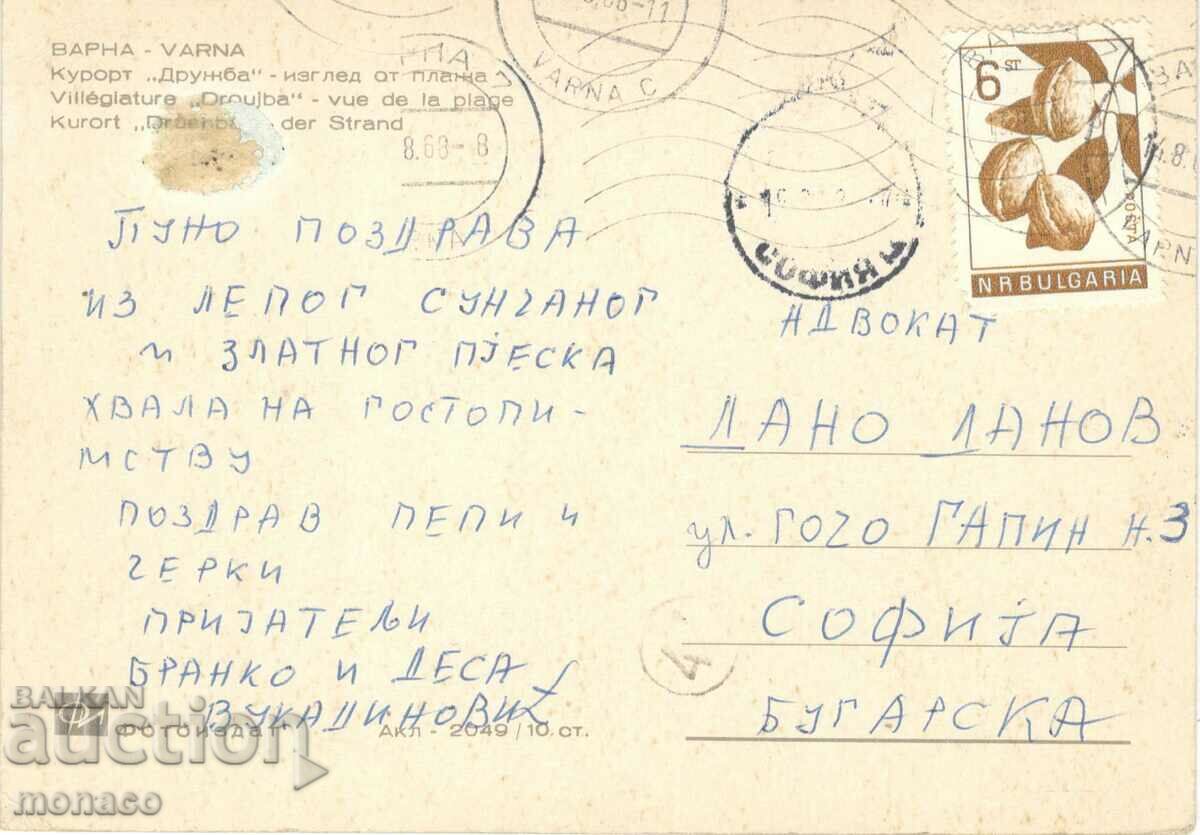 ВАРНА - VARNA
Курорт „Дружба“ - изглед от плажа
Villégiature „Droujba“ - vue de la plage
Kurort - der Strand
VARNA C
8.68-8
СОФИЯ Ц
6 ST
POŠTA
N R BULGARIA
ПУНО ПОЗДРАВА
ИЗ ЛЕПОГ СУНЧАНОГ
И ЗЛАТНОГ ПЈЕСКА
ХВАЛА НА ГОСТОПИ-
МСТВУ
ПОЗДРАВ ПЕПИ И
ЧЕРКИ
ПРИЈАТЕЉИ
БРАНКО И ДЕСА
ВУКАДИНОВИЋ
АДВОКАТ
ДАНО ДАНОВ
ул. ГОЧО ГАПИН Н.3
СОФИЈА
БУГАРСКА
4
ФИ
Фотоиздат
Акл - 2049/10. ст.
BALKAN
auction
monaco